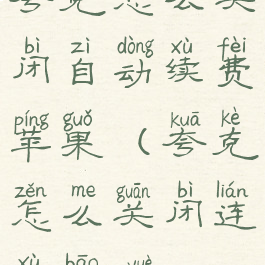 bì zì dòng xù fèi
闭自动续费
píng guǒ kuā kè
苹果（夸克
zěn me guān bì lián
怎么关闭连
xù bāo yuè